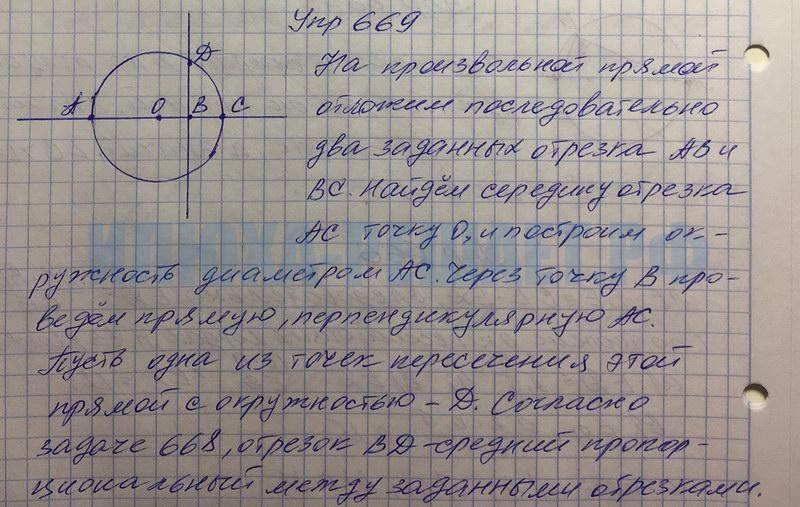 Упр 669
На произвольной прямой
отложим последовательно
два заданных отрезка АВ и
ВС. Найдём середину отрезка
АС точку О, и построим ок-
ружность диаметром АС. Через точку В про-
ведём прямую, перпендикулярную АС.
Пусть одна из точек пересечения этой
прямой с окружностью – D. Согласно
задаче 668, отрезок BD – средний пропор-
циональный между заданными отрезками.
D
А О В С